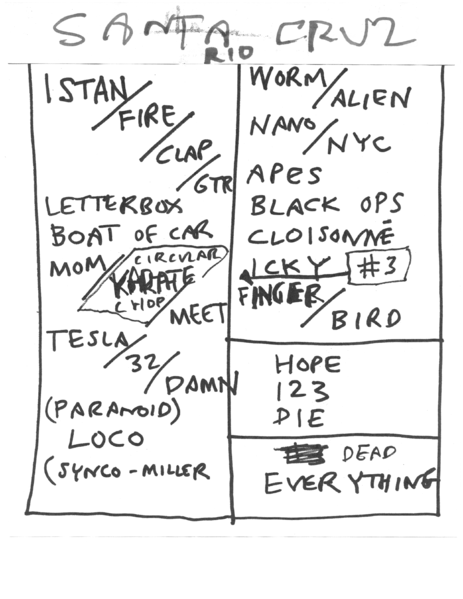 SANTA CRUZ
RIO
ISTAN/
FIRE/
CLAP/
GTR
LETTERBOX
BOAT OF CAR
MOM/
CIRCULAR
KARATE
CHOP
/MEET
TESLA/
32/
DAMN
(PARANOID)
LOCO
(SYNCO-MILLER
WORM/
ALIEN
NANO/
NYC
APES
BLACK OPS
CLOISONNÉ
ICKY #3
FINGER/
BIRD
HOPE
123
DIE
DEAD
EVERYTHING